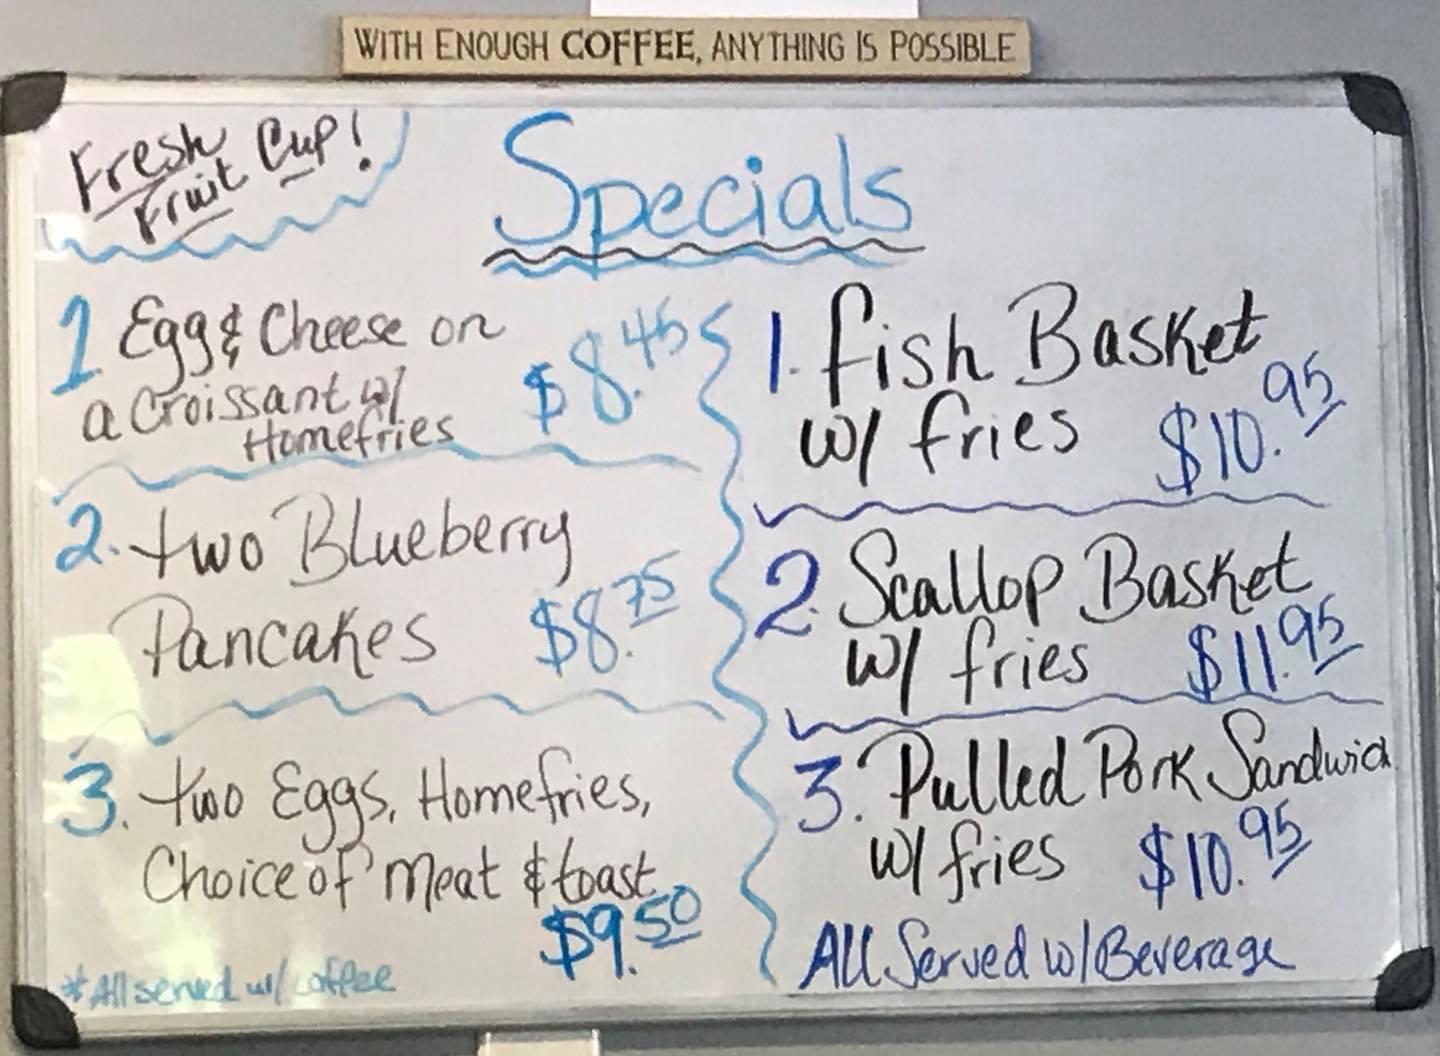 WITH ENOUGH COFFEE, ANYTHING IS POSSIBLE
Fresh
Fruit Cup!
Specials
1 Egg & Cheese on
a Croissant w/
Homefries
$8.45
2. two Blueberry
Pancakes $8.75
3. two Eggs, Homefries,
Choice of meat & toast
$9.50
*All served w/ coffee
1. fish Basket
w/ fries $10.95
2. Scallop Basket
w/ fries $11.95
3. Pulled Pork Sandwich
w/ fries $10.95
All Served w/ Beverage